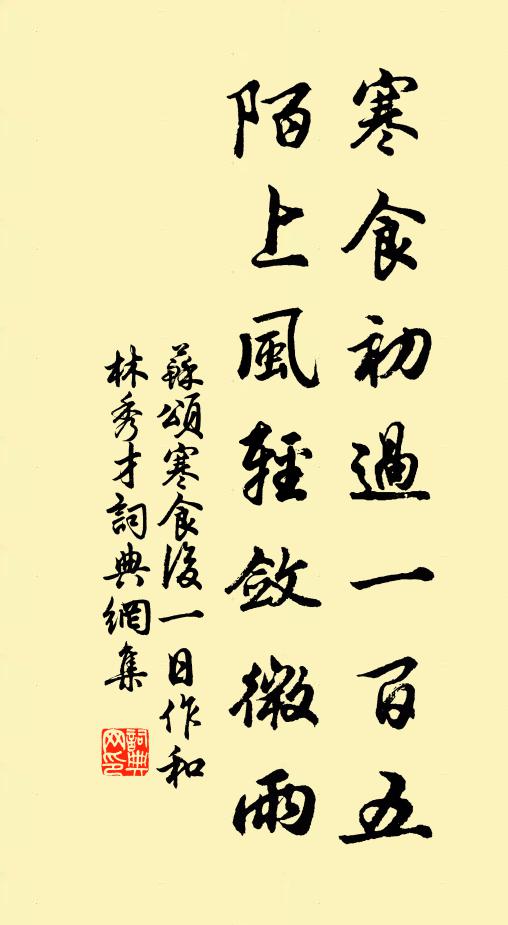 寒食初過一百五
陌上風輕斂微雨
蘇頌寒食後一日作和
林秀才詞典網集
詞典
网印